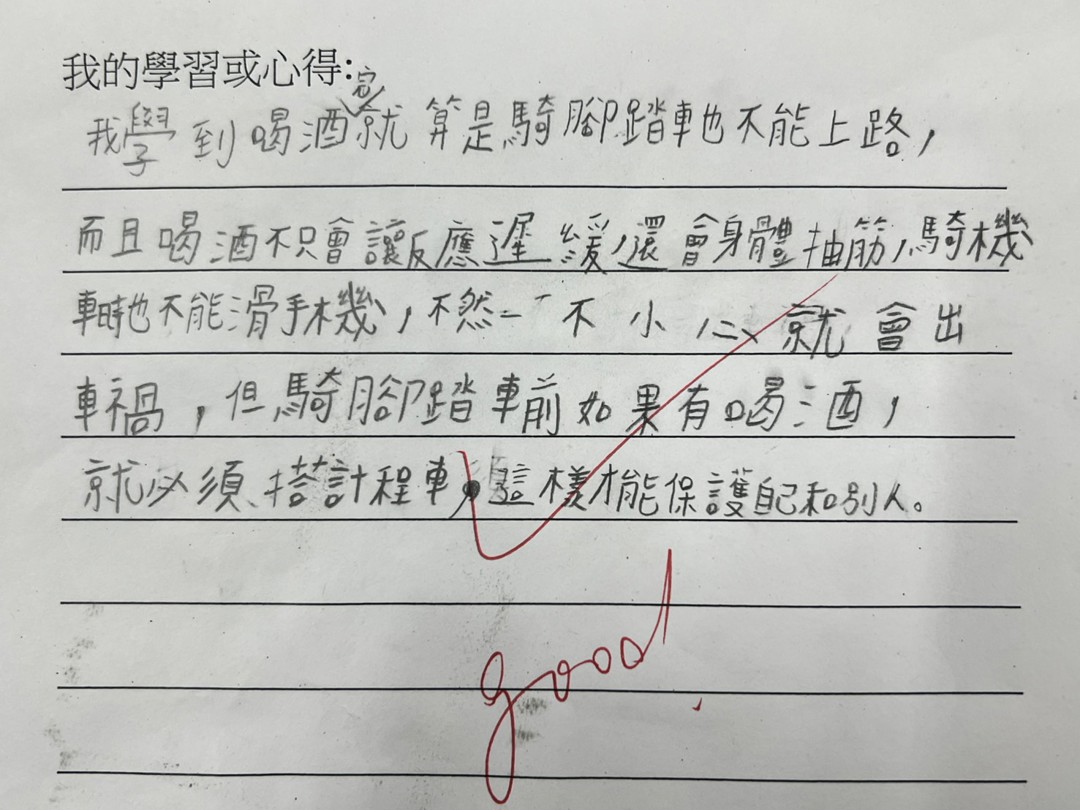 我的學習或心得:
我學到喝酒完就算是騎腳踏車也不能上路，
而且喝酒不只會讓反應遲緩，還會身體抽筋，騎機
車時也不能滑手機，不然一不小心就會出
車禍，但騎腳踏車前如果有喝酒，
就必須搭計程車，這樣才能保護自己和別人。
good!